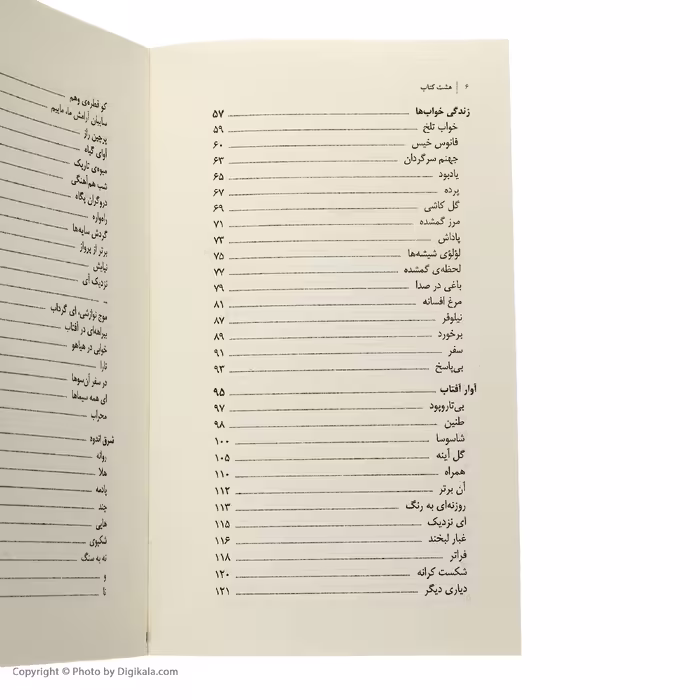 ۶ | هشت کتاب
زندگی خواب‌ها ۵۷
خواب تلخ ۵۹
فانوس خیس ۶۰
جهنم سرگردان ۶۳
یادبود ۶۵
پرده ۶۷
گل کاشی ۶۹
مرز گمشده ۷۱
پاداش ۷۳
لؤلؤی شیشه‌ها ۷۵
لحظه‌ی گمشده ۷۷
باغی در صدا ۷۹
مرغ افسانه ۸۱
نیلوفر ۸۷
برخورد ۸۹
سفر ۹۱
بی‌پاسخ ۹۳
آوار آفتاب ۹۵
بی‌تاروپود ۹۷
طنین ۹۸
شاسوسا ۱۰۰
گل آینه ۱۰۵
همراه ۱۱۰
آن برتر ۱۱۲
روزنه‌ای به رنگ ۱۱۳
ای نزدیک ۱۱۵
غبار لبخند ۱۱۶
فراتر ۱۱۸
شکست کرانه ۱۲۰
دیاری دیگر ۱۲۱
کو قطره‌ی وهم
سایبان آرامش ما، ماییم
پرچین راز
آوای گیاه
میوه‌ی تاریک
شب هم‌آهنگی
دروگران پگاه
راه‌واره
گردش سایه‌ها
برتر از پرواز
نیایش
نزدیک آی
...
موج نوازشی، ای گرداب
بیراهه‌ای در آفتاب
خوابی در هیاهو
تارا
در سفر آن‌سوها
ای همه سیماها
محراب
شرق اندوه
روانه
هلا
پادمه
چند
هایی
شکپوی
نه به سنگ
و
نا
Copyright © Photo by Digikala.com